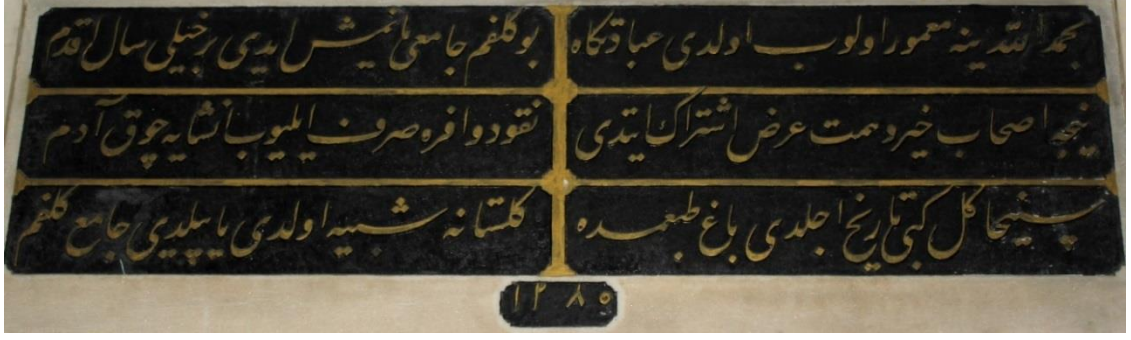 بحمد الله ینه معمور اولوب اولدی عبادتكاه
بو كلفم جامعی یانمش ایدی بر خیلی سال اقدم
نیجه اصحاب خیر و همت عرض اشتراك ایتدی
نقود وافره صرف ایلیوب انشایه چوق آدم
سنیحا كل كبی تاریخ اچلدی باغ طبعمده
كلستانه شبیه اولدی یاپیلدی جامع كلفم
١٢٨٥